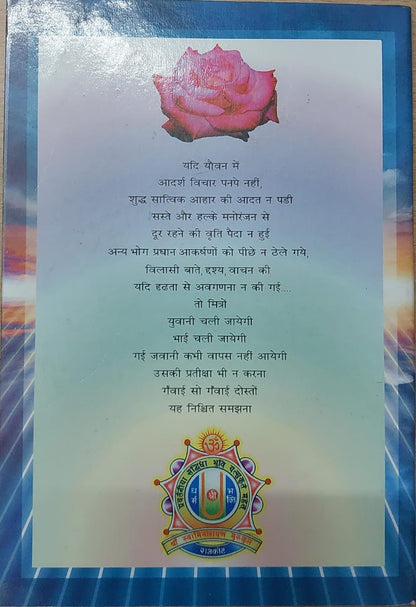 यदि यौवन में
आदर्श विचार पनपे नहीं,
शुद्ध सात्विक आहार की आदत न पडी
सस्ते और हल्के मनोरंजन से
दूर रहने की वृति पैदा न हुई
अन्य भोग प्रधान आकर्षणों को पीछे न ठेले गये,
विलासी बाते, दृश्य, वाचन की
यदि दृढता से अवगणना न की गई....
तो मित्रों
युवानी चली जायेगी
भाई चली जायेगी
गई जवानी कभी वापस नहीं आयेगी
उसकी प्रतीक्षा भी न करना
गँवाई सो गँवाई दोस्तों
यह निश्चित समझना
ॐ
प्रवर्तनीया सद्विद्या भुवि यत्सुकृतं महत्
धर्म
श्री
भक्ति
श्री स्वामिनारायण गुरुकुल
राजकोट